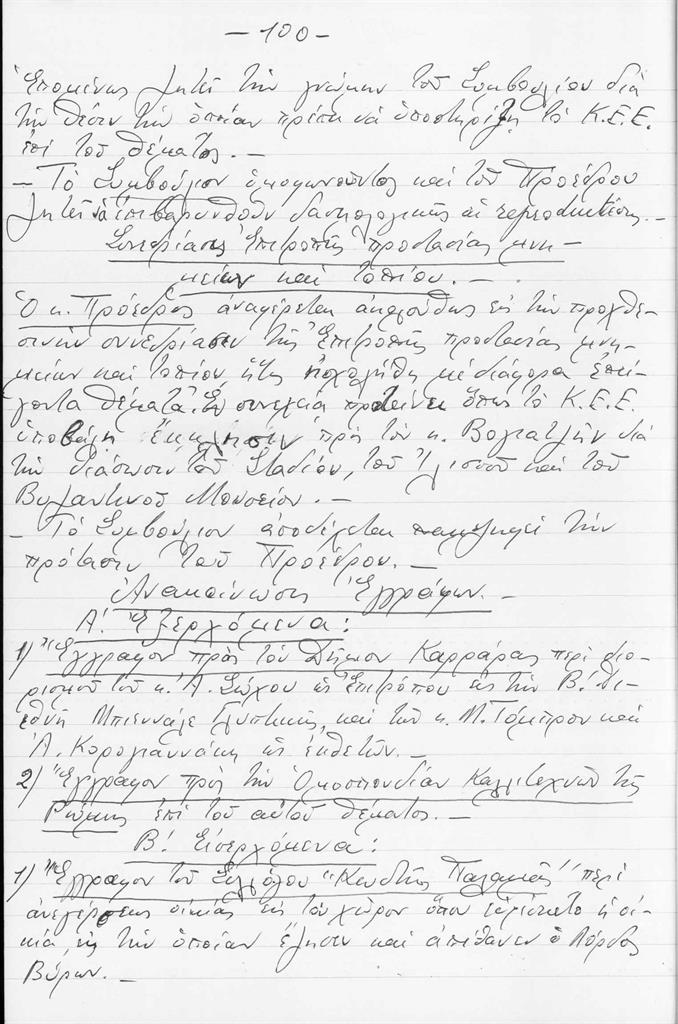 - 100 -
Ἑπομένως ζητεῖ τὴν γνώμην τοῦ Συμβουλίου διὰ
τὴν θέσιν τὴν ὁποίαν πρέπει νὰ ὑποστηρίξῃ τὸ Κ.Ε.Ε.
ἐπὶ τοῦ θέματος. -
- Τὸ Συμβούλιον ὁμοφωνοῦντος καὶ τοῦ Προέδρου
ζητεῖ νὰ ἐπιβαρυνθοῦν δασμολογικῶς αἱ reproductions. -
Συνεδρίασις Ἐπιτροπῆς προστασίας μνη-
μείων καὶ τοπίου. -
Ὁ κ. Πρόεδρος ἀναφέρεται ἀκολούθως εἰς τὴν προχθε-
σινὴν συνεδρίασιν τῆς Ἐπιτροπῆς προστασίας μνη-
μείων καὶ τοπίου ἥτις ἠσχολήθη μὲ διάφορα ἐπεί-
γοντα θέματα. Ἐν συνεχείᾳ προτείνει ὅπως τὸ Κ.Ε.Ε.
ὑποβάλῃ ἔκκλησιν πρὸς τὸν κ. Βογιατζῆν διὰ
τὴν διάσωσιν τοῦ Σταδίου, τοῦ Ἰλισσοῦ καὶ τοῦ
Βυζαντινοῦ Μουσείου. -
- Τὸ Συμβούλιον ἀποδέχεται παμψηφεὶ τὴν
πρότασιν τοῦ Προέδρου. -
Ἀνακοίνωσις Ἐγγράφων. -
Α! Ἐξερχόμενα:
1) Ἔγγραφον πρὸς τὸν Δῆμον Καρράρας περὶ διο-
ρισμοῦ τοῦ κ. Ἀ. Σώχου ὡς Ἐπιτρόπου εἰς τὴν Β! Δι-
εθνῆ Μπιεννάλε Γλυπτικῆς, καὶ τῶν κ. Μ. Τόμπρου καὶ
Ἀ. Κορογιαννάκη ὡς ἐκθετῶν. -
2) Ἔγγραφον πρὸς τὴν Ὁμοσπονδίαν Καλλιτεχνῶν τῆς
Ρώμης ἐπὶ τοῦ αὐτοῦ θέματος. -
Β! Εἰσερχόμενα:
1) Ἔγγραφον τοῦ Συλλόγου "Κωστῆς Παλαμᾶς" περὶ
ἀνεγέρσεως οἰκίας εἰς τὸν χῶρον ὅπου εὑρίσκετο ἡ οἰ-
κία εἰς τὴν ὁποίαν ἔζησεν καὶ ἀπέθανεν ὁ Λόρδος
Βύρων. -